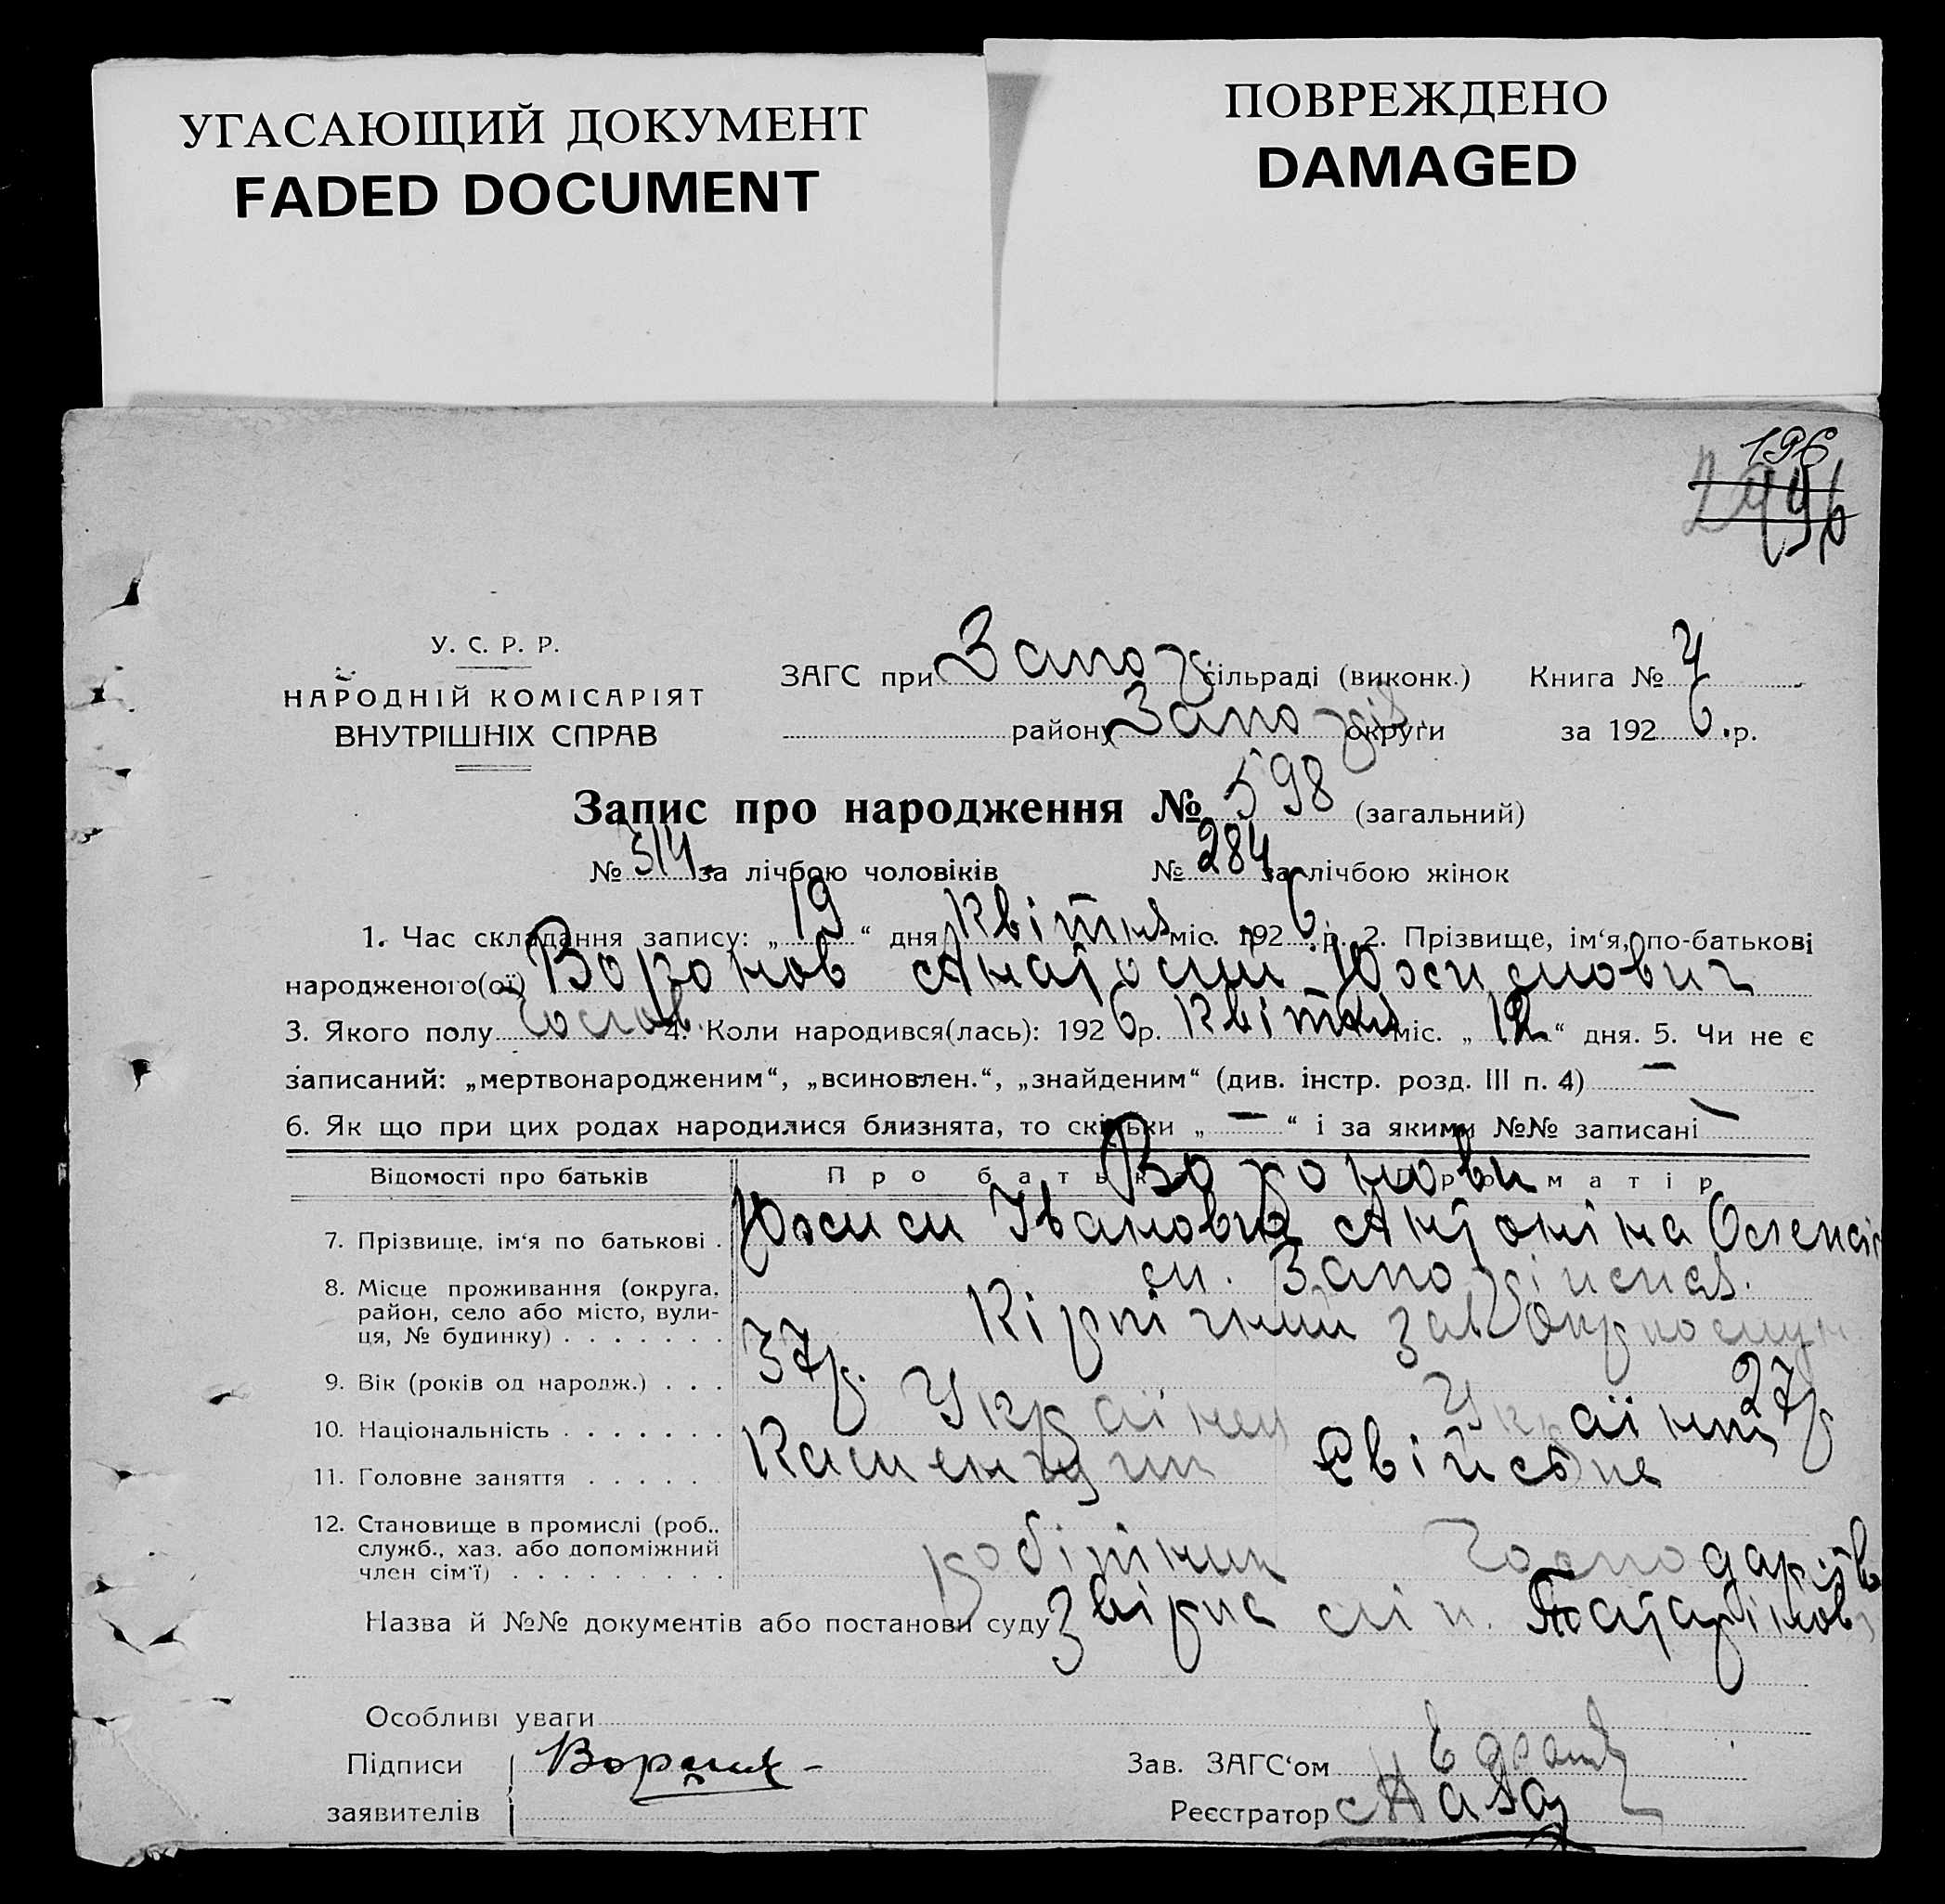 УГАСАЮЩИЙ ДОКУМЕНТ
FADED DOCUMENT
ПОВРЕЖДЕНО
DAMAGED
196
У. С. Р. Р.
НАРОДНІЙ КОМІСАРІЯТ
ВНУТРІШНІХ СПРАВ
ЗАГС при Запоріж сільраді (виконк.) Книга № 4
району Запоріж округи за 1926 р.
Запис про народження № 598 (загальний)
№ 314 за лічбою чоловіків № 284 за лічбою жінок
1. Час складання запису: „19“ дня Квітня міс. 1926 р. 2. Прізвище, ім‘я, по-батькові
народженого(ої) Воронов Анатолій
3. Якого полу чолов. 4. Коли народився(лась): 1926 р. Квітня міс. „12“ дня. 5. Чи не є
записаний: „мертвонародженим“, „всиновлен.“, „знайденим“ (див. інстр. розд. III п. 4) —
6. Як що при цих родах народилися близнята, то скільки „—“ і за якими №№ записані —
Відомості про батьків Про батька Про матір
Воронови
7. Прізвище, ім‘я по батькові . Іванович Антоніна
8. Місце проживання (округа, район, село або місто, вулиця, № будинку) . . . . . . . м. Запоріжжя.
Кірпічний зав
9. Вік (років од народж.) . . . 37 р. 27 р
10. Національність . . . . . . . Українец Українка
11. Головне заняття . . . . . Каменщик Свійське
12. Становище в промислі (роб., служб., хаз. або допоміжний член сім‘ї) . . . . . . . . . робітник господарство
Назва й №№ документів або постанови суду Звірка
Особливі уваги
Підписи заявителів
Зав. ЗАГС‘ом
Реєстратор